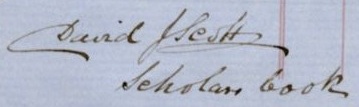 David J Scott
Scholars book